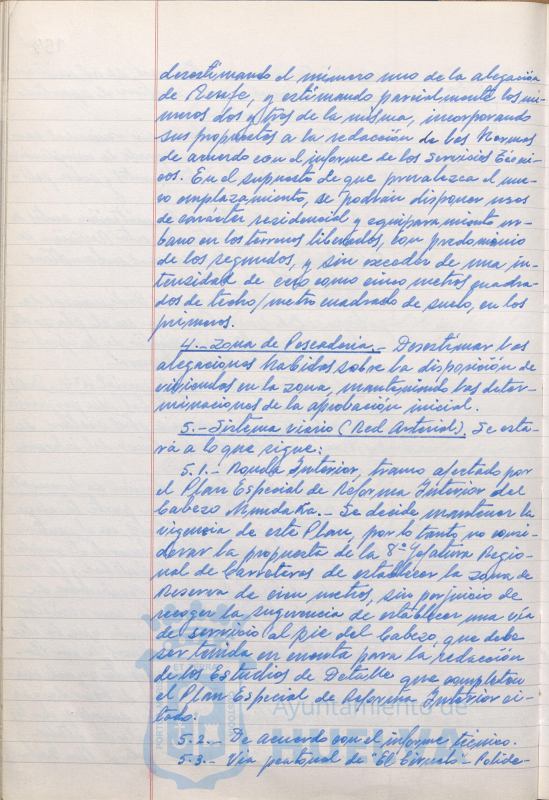 desestimando el número uno de la alegación
de Renfe, y estimando parcialmente los nú-
meros dos y tres de la misma, incorporando
sus propuestas a la redacción de las Normas
de acuerdo con el informe de los Servicios Técni-
cos. En el supuesto de que prevalezca el nue-
vo emplazamiento, se podrán disponer usos
de carácter residencial y equipamiento ur-
bano en los terrenos liberados, con predominio
de los segundos, y sin exceder de una in-
tensidad de cero como cinco metros cuadra-
dos de techo/metro cuadrado de suelo, en los
primeros.
4.- Zona de Pescadería.- Desestimar las
alegaciones habidas sobre la disposición de
viviendas en la zona, manteniendo las deter-
minaciones de la aprobación inicial.
5.- Sistema viario (Red Arterial). Se esta-
rá a lo que sigue:
5.1.- Ronda Interior, tramo afectado por
el Plan Especial de Reforma Interior del
Cabezo Mundaka.- Se decide mantener la
vigencia de este Plan, por lo tanto, no consi-
derar la propuesta de la 8ª Jefatura Regio-
nal de Carreteras de establecer la zona de
Reserva de cien metros, sin perjuicio de
recoger la sugerencia de establecer una vía
de servicio al pie del Cabezo, que debe
ser tenida en cuenta para la redacción
de los Estudios de Detalle que completen
el Plan Especial de Reforma Interior ci-
tado.
5.2.- De acuerdo con el informe técnico.
5.3.- Vía peatonal de "El Ciruelo"- Polide-
Ayuntamiento de
HUELVA